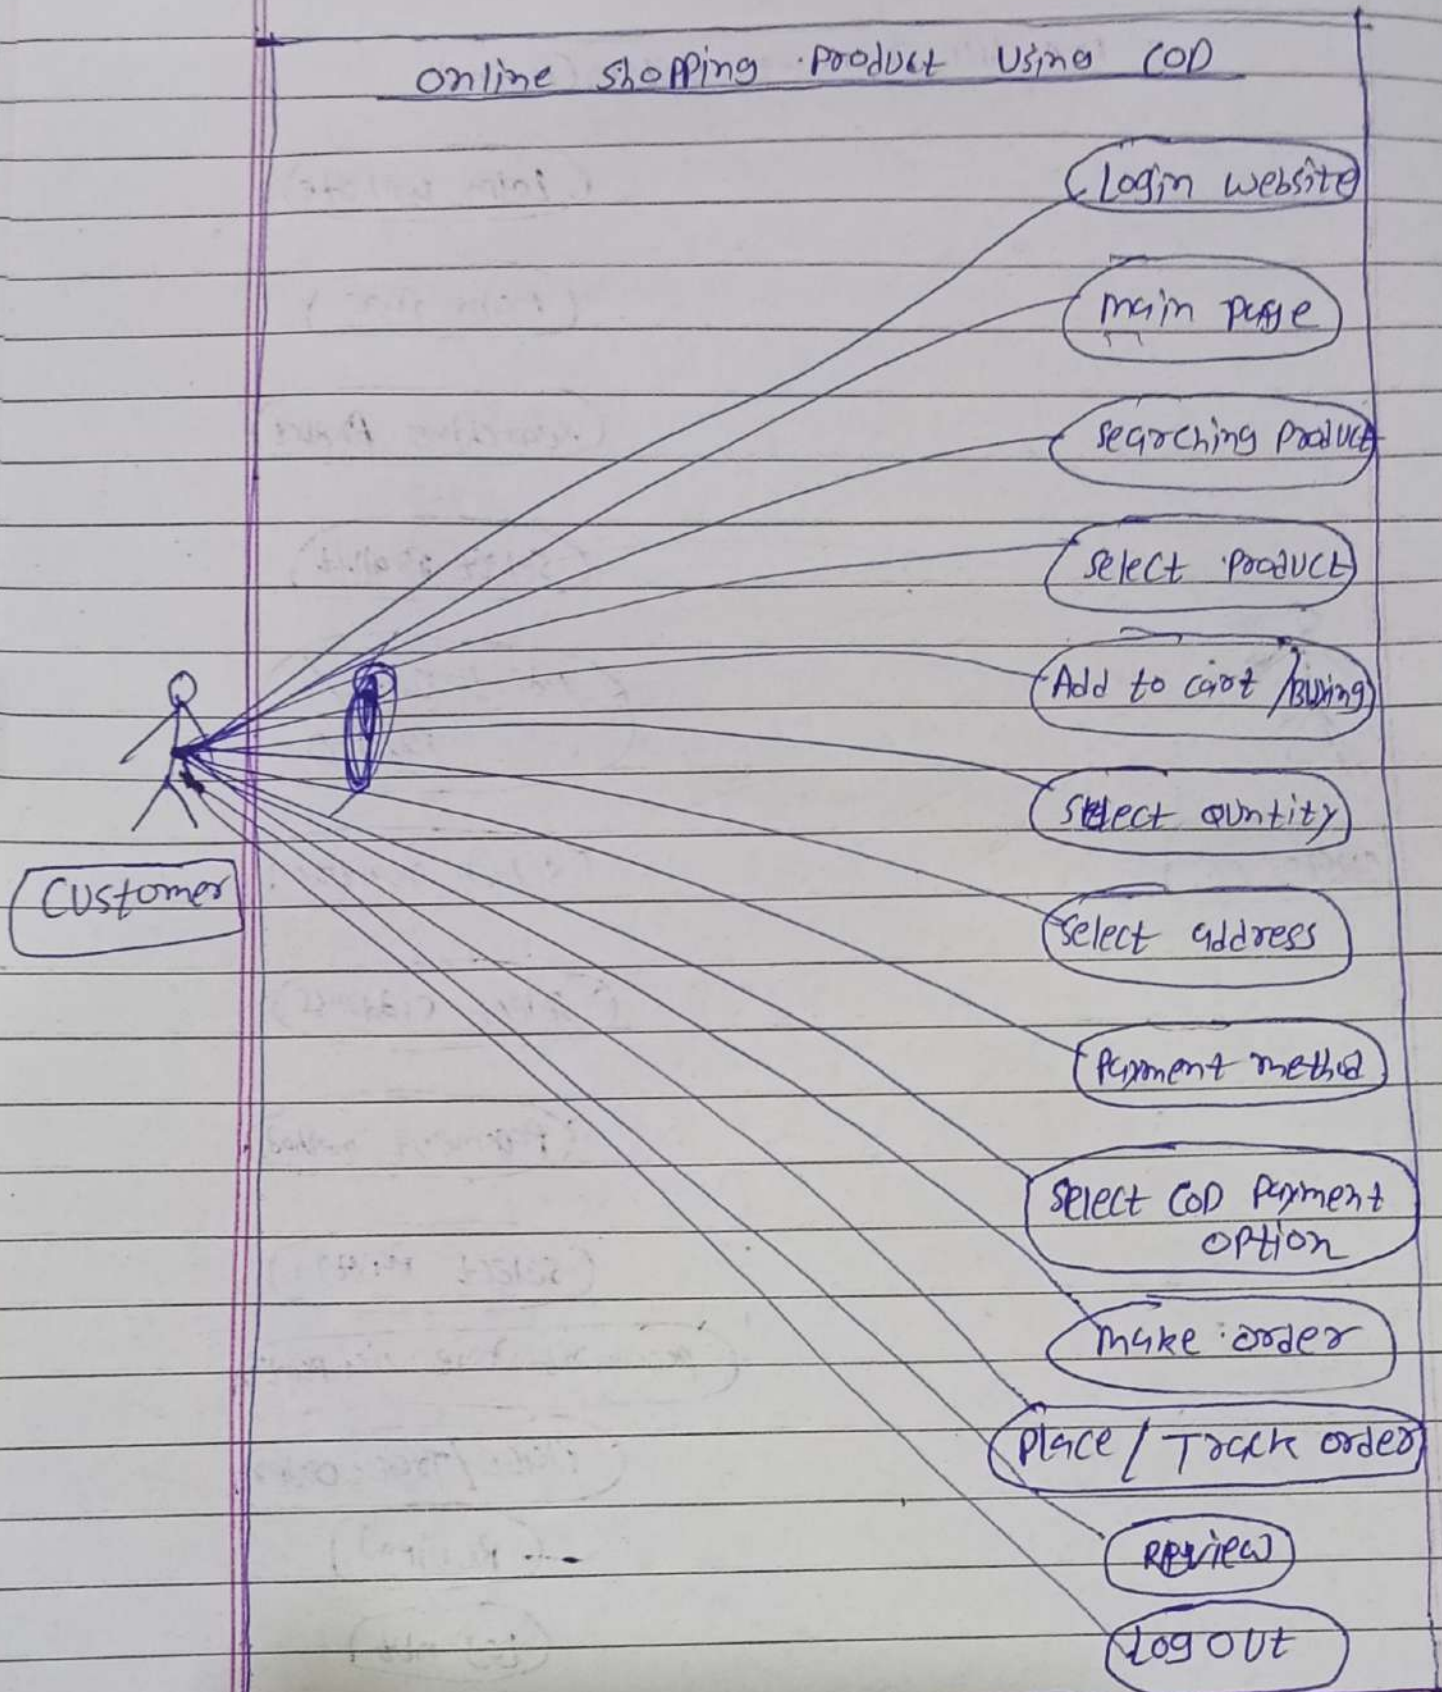 Online Shopping Product Using COD
Login website
main page
searching product
select product
Add to cart / Buying
select quntity
select address
Customer
Payment method
select COD payment
option
make order
place / Track order
Review
Log out